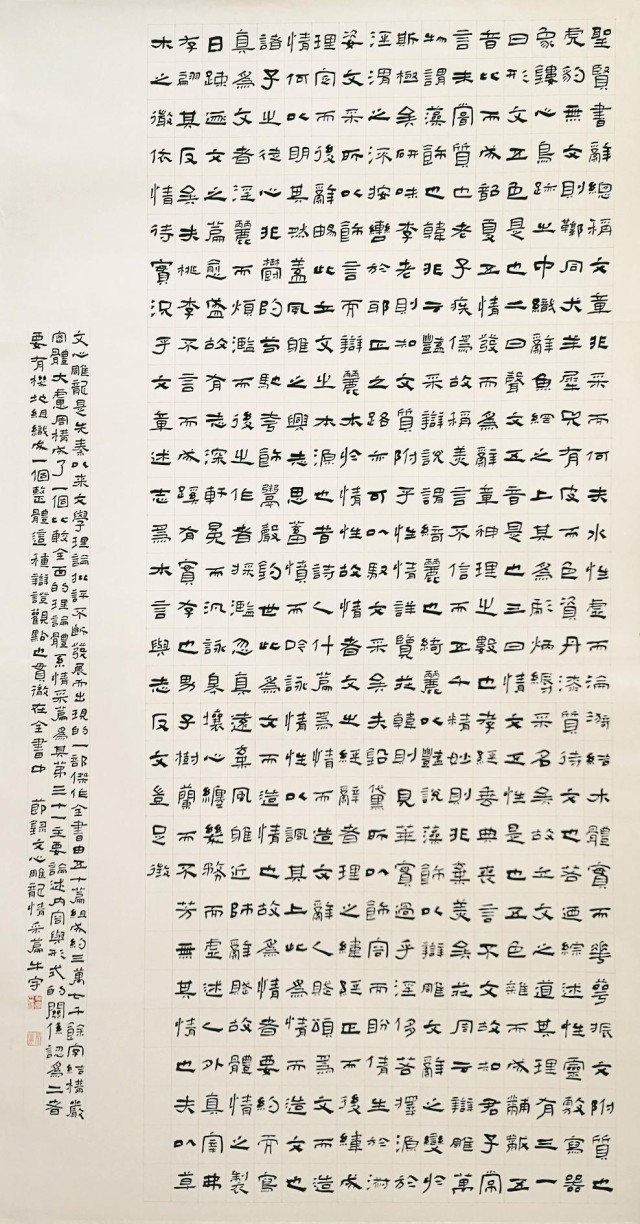 聖賢書辭總稱文章非采而何夫水性虛而淪漪結木體實而花萼振文附質也
虎豹無文則鞹同犬羊犀兕有皮而色資丹漆質待文也若迺綜述性靈敷寫器
象鏤心鳥跡之中織辭魚網之上其爲彪炳縟采名矣故立文之道其理有三一
曰形文五色是也二曰聲文五音是也三曰情文五性是也五色雜而成黼黻五
音比而成韶夏五情發而爲辭章神理之數也孝經垂典喪言不文故知君子常
言未嘗質也老子疾僞故稱美言不信而五千精妙則非棄美矣莊周云辯雕萬
物謂藻飾也韓非云豔采辯說謂綺麗也綺麗以豔說藻飾以辯雕文辭之變於
斯極矣研味李老則知文質附乎性情詳覽莊韓則見華實過乎淫侈若擇源於
涇渭之流按轡於邪正之路亦可以馭文采矣夫鉛黛所以飾容而盼倩生於淑
姿文采所以飾言而辯麗本於情性故情者文之經辭者理之緯經正而後緯成
理定而後辭暢此立文之本源也昔詩人什篇爲情而造文辭人賦頌爲文而造
情何以明其然蓋風雅之興志思蓄憤而吟詠情性以諷其上此爲情而造文也
諸子之徒心非鬱陶苟馳夸飾鬻聲釣世此爲文而造情也故爲情者要約而寫
真爲文者淫麗而煩濫而後之作者採濫忽真遠棄風雅近師辭賦故體情之製
日疎逐文之篇愈盛故有志深軒冕而汎詠皋壤心纏幾務而虛述人外真宰弗
存翩其反矣夫桃李不言而成蹊有實存也男子樹蘭而不芳無其情也夫以草
木之微依情待實況乎文章述志爲本言與志反文豈足徵
文心雕龍是先秦以來文學理論批評不斷發展而出現的一部傑作全書由五十篇組成約三萬七千餘字結構嚴
密體大慮周構成了一個比較全面的理論體系情采篇爲其第三十一主要論述內容與形式的關係認爲二者
要有機地組織成一個整體這種辯證觀點也貫徹在全書中 節錄文心雕龍情采篇牛宇